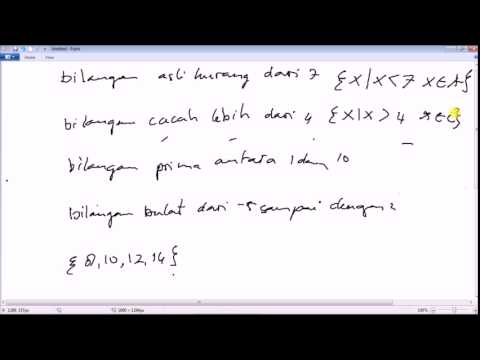 Untitled - Paint
bilangan asli kurang dari 7 {x|x<7 x∈A}
bilangan cacah lebih dari 4 {x|x>4 x∈C}
bilangan prima antara 1 dan 10
bilangan bulat dari -5 sampai dengan 2
{8,10,12,14}
100%